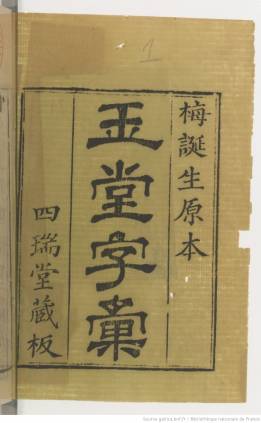 1
梅誕生原本
玉堂字彙
四瑞堂藏板
Source gallica.bnf.fr / Bibliothèque nationale de France